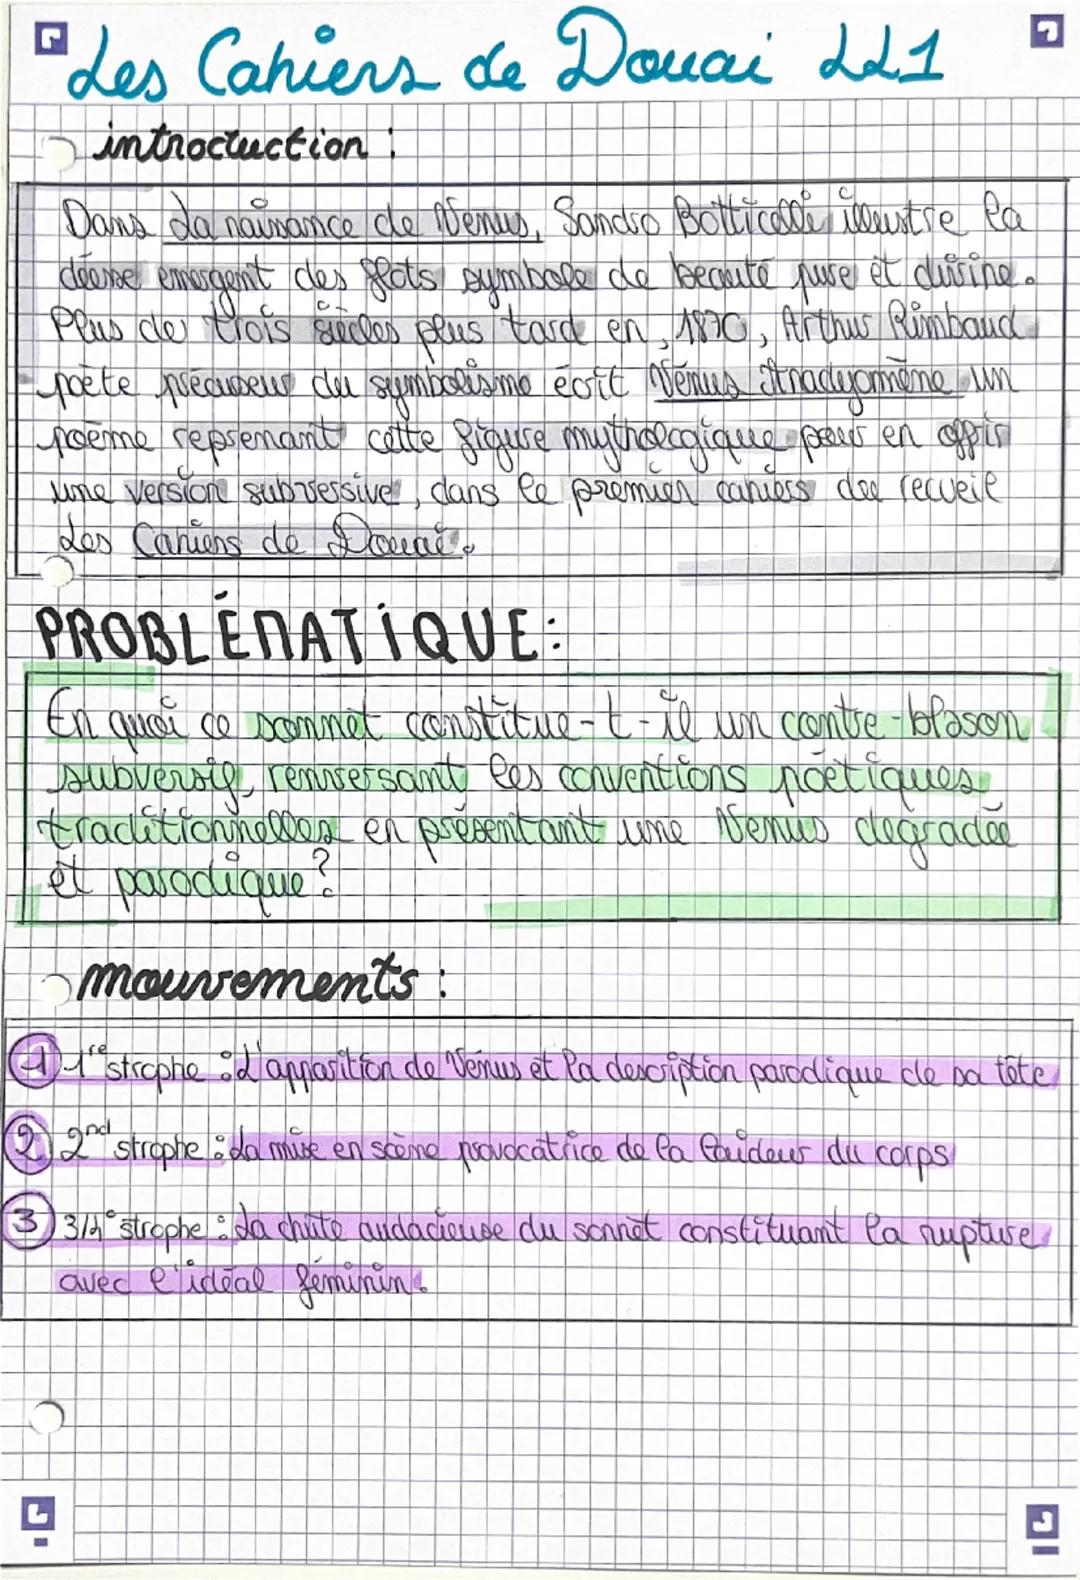 Les Cahiers de Douai LL1
introduction :
Dans La naissance de Venus, Sandro Botticelli illustre la
déesse emergent des flots symbole de beauté pure et divine.
Plus de trois siècles plus tard en, 1870, Arthur Rimbaud
poète précurseur du symbolisme écrit Vénus Anadyomène un
poème reprenant cette figure mythologique pour en offrir
une version subversive, dans le premier cahiers du recueil
Les Cahiers de Douai.
PROBLÉMATIQUE :
En quoi ce sonnet constitue-t-il un contre-blason
subversif, renversant les conventions poétiques
traditionnelles en présentant une Venus degradée
et parodique ?
mouvements :
1 1re strophe : L'apparition de Vénus et la description parodique de sa tête
2 2nd strophe : La mise en scène provocatrice de la laideur du corps
3 3/4e strophe : La chute audacieuse du sonnet constituant la rupture
avec l'idéal féminin.